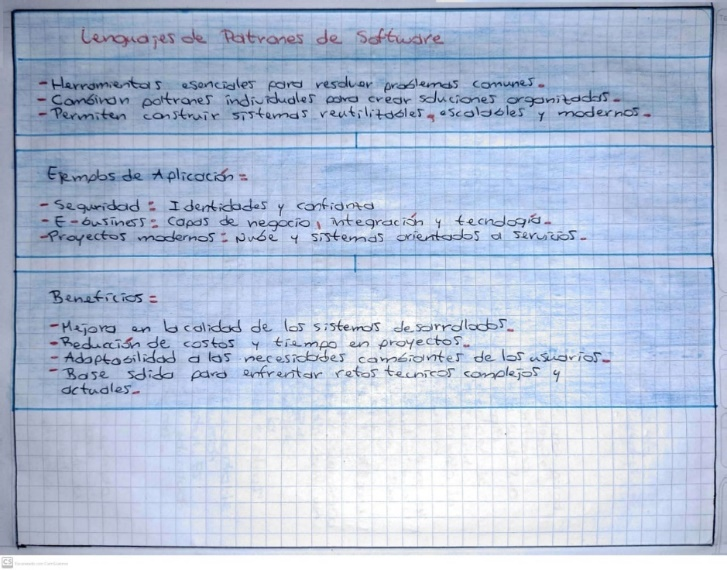 Lenguajes de Patrones de Software
- Herramientas esenciales para resolver problemas comunes.
- Combinan patrones individuales para crear soluciones organizadas.
- Permiten construir sistemas reutilizables, escalables y modernos.
Ejemplos de Aplicación:
- Seguridad: Identidades y confianza
- E-business: Capas de negocio, integración y tecnología.
- Proyectos modernos: Nube y sistemas orientados a servicios.
Beneficios:
- Mejora en la calidad de los sistemas desarrollados.
- Reducción de costos y tiempo en proyectos.
- Adaptabilidad a las necesidades cambiantes de los usuarios.
- Base solida para enfrentar retos tecnicos complejos y
actuales.
CS